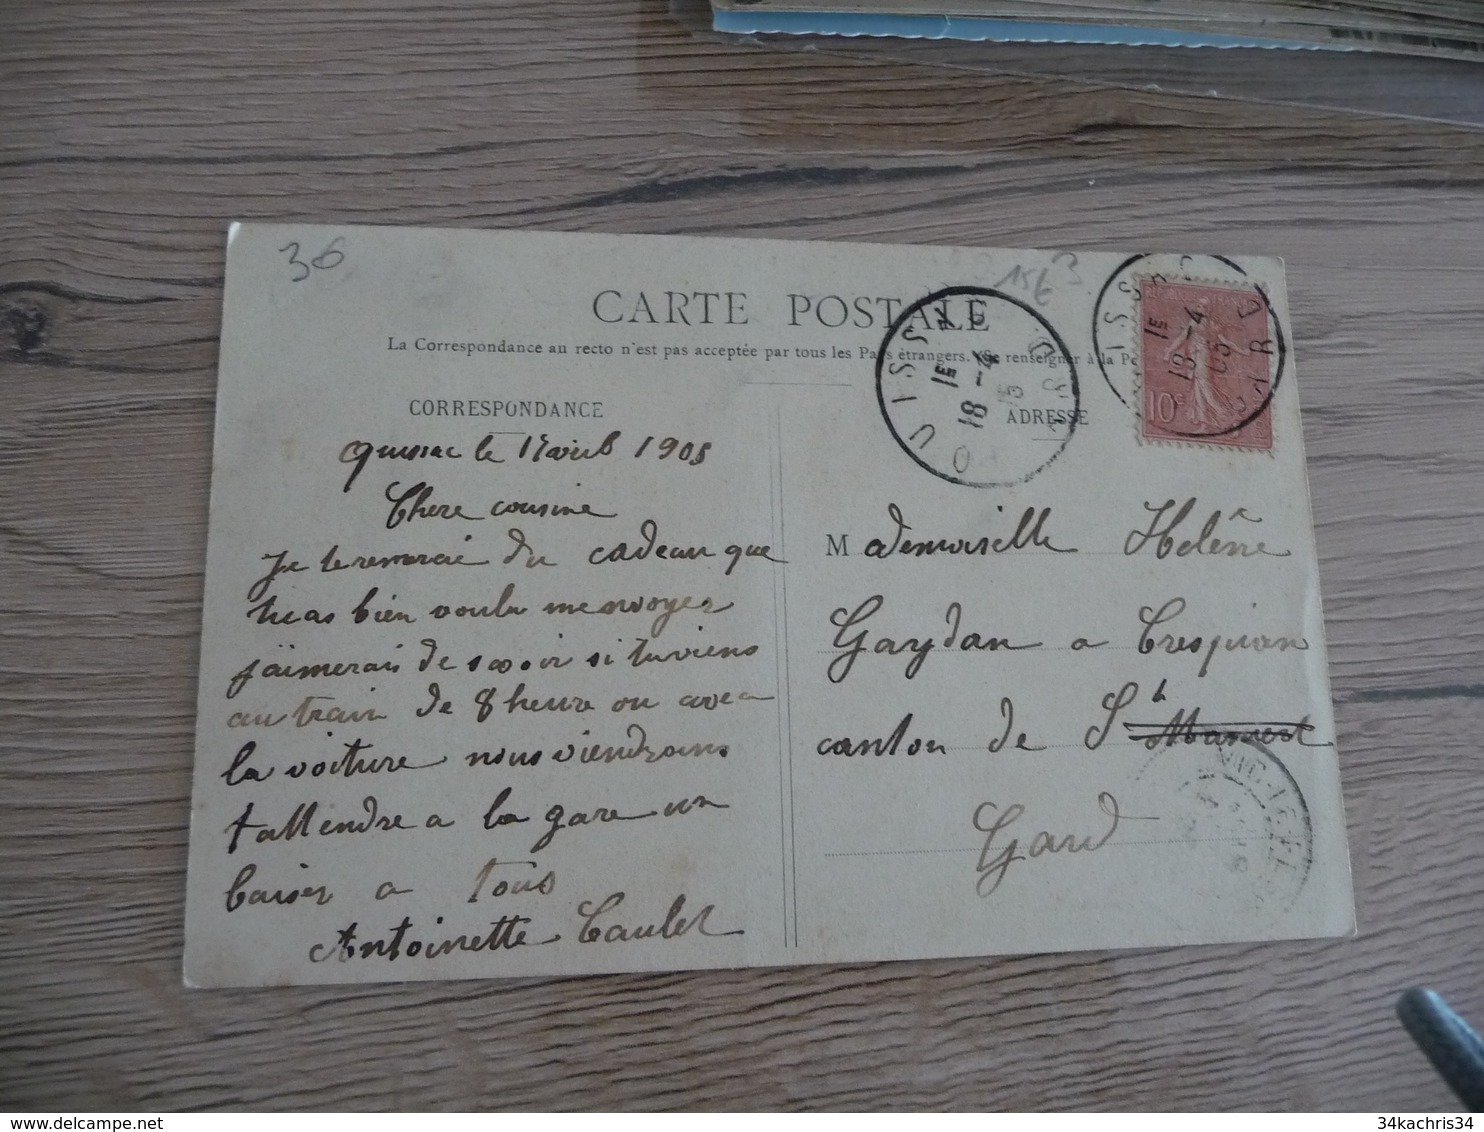 36
1563
CARTE POSTALE
La Correspondance au recto n'est pas acceptée par tous les Pays étrangers. (Se renseigner à la Po
CORRESPONDANCE
ADRESSE
Quissac le 17 avril 1905
Chere cousine
Je te remerai du cadeau que
tu as bien voulu menvoyer
j'aimerais de savoir si tu viens
au train de 8 heure ou avec
la voiture nous viendrons
tattendre a la gare un
baiser a tous
Antoinette Caulet
Mademoiselle Helêne
Gaydan a Crespian
canton de St Mamert
Gard
QUISSAC GARD
1E
18 -4
05
QUISSAC GARD
1E
18 -4
05
10c
VIC-LE-FESQ
34kachris34